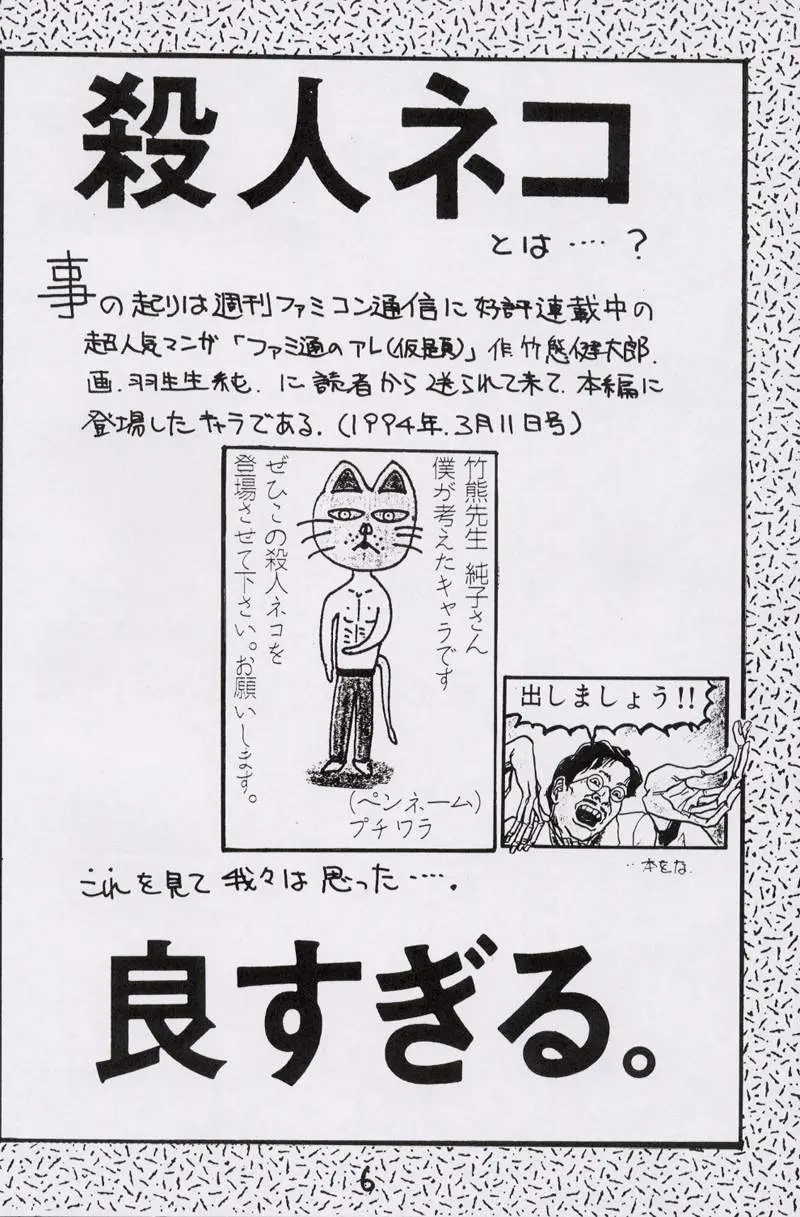 殺人ネコ
とは‥‥？
事の起りは週刊ファミコン通信に好評連載中の
超人気マンガ「ファミ通のアレ(仮題)」作.竹熊健太郎.
画.羽生生純.に読者から送られて来て.本編に
登場したキャラである.(1994年.3月11日号)
竹熊先生 純子さん
僕が考えたキャラです
ぜひこの殺人ネコを
登場させて下さい。お願いします。
(ペンネーム)
プチワラ
出しましょう!!
‥本をな.
これを見て我々は思った‥‥.
良すぎる。
6